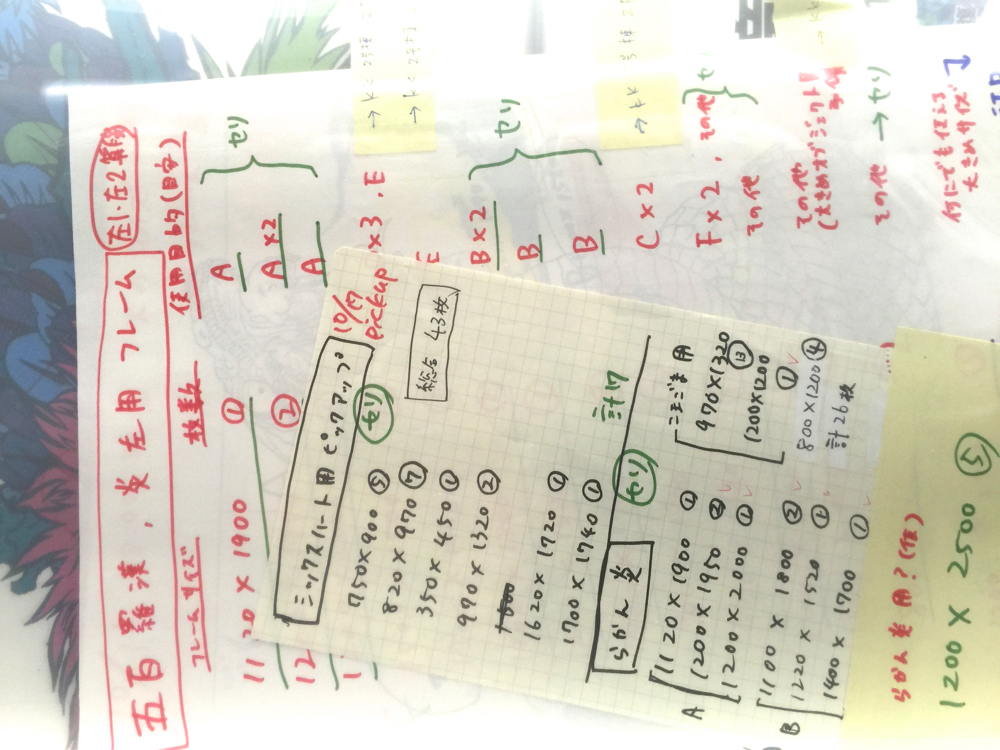 五百羅漢，炎左用フレーム
左1.左2第
フレームサイズ 枚数 使用目的(目安)
1120 × 1900 ① A
② A×2
A
セリ
×3．E
E
B×2
B
B
セリ
C×2
F×2．その他
その他
その他
(大きめオブジェクト)
その他 → セリ
何にでも使える
大きめサイズ
10/17
pickup
ミックスハート用 ピックアップ
総合 43枚
セリ
750×900 ⑤
820×970 ⑦
350×450 ①
990×1320 ②
1620×1720 ①
1700×1740 ①
計17
らかん 炎
セリ
A
1120×1900 ①
1200×1950 ②
1200×2000 ①
B
1100×1800 ②
1220×1520 ①
1400×1700 ①
こまごま用
970×1320 ⑬
1200×1200 ①
800×1200 ④
計26枚
らかん炎用？(仮)
1200×2500 ⑤